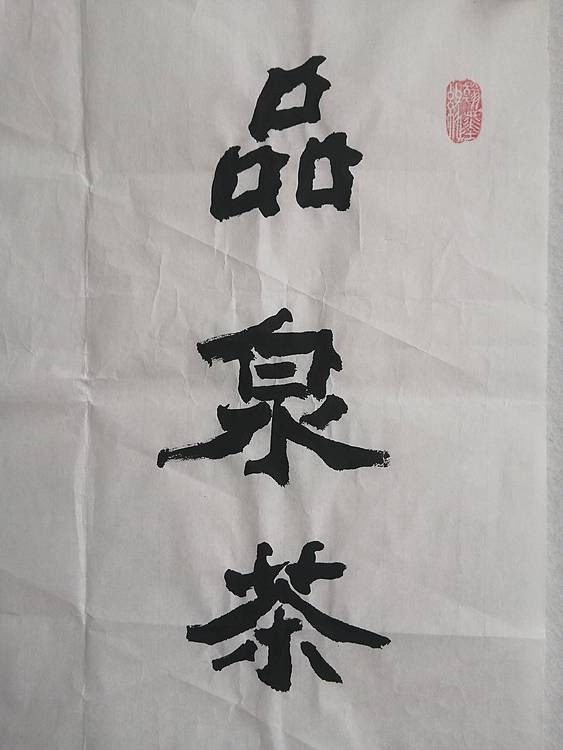 品泉茶